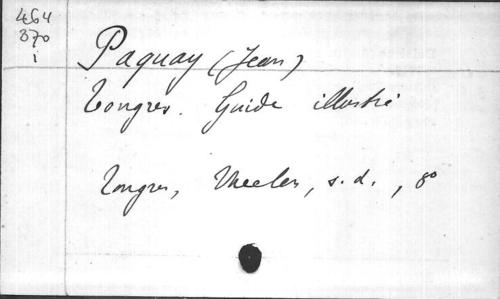 464
370
i
Paquay (Jean)
Tongres. Guide illustré
Tongres, , s.d., 8°